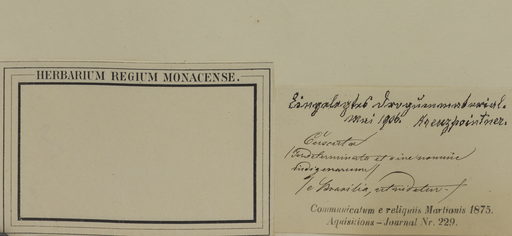 HERBARIUM REGIUM MONACENSE.
Eingelegtes Droguenmaterial.
Mai 1906. Kreuzpointner.
Cuscuta
(Indeterminata et sine nomine
indigenarum)
e Brasilia, ut videtur.
Communicatum e reliquiis Martianis 1875.
Aquisitions-Journal Nr. 229.